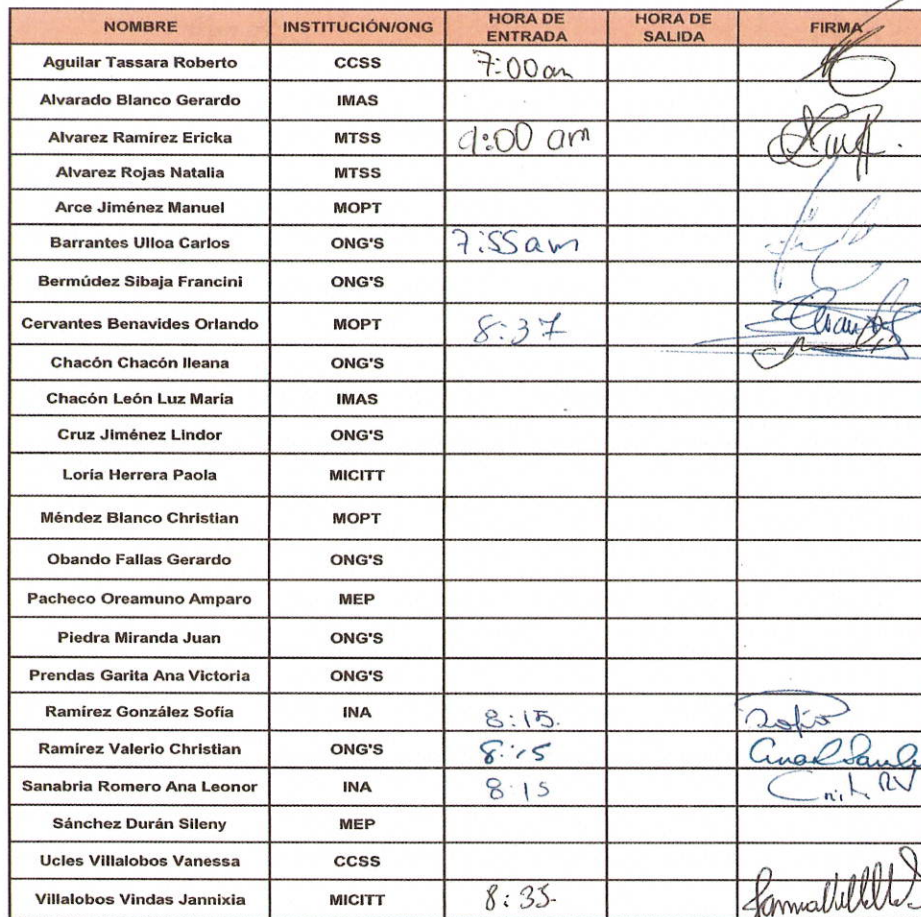 NOMBRE INSTITUCIÓN/ONG HORA DE ENTRADA HORA DE SALIDA FIRMA
Aguilar Tassara Roberto CCSS 7:00am
Alvarado Blanco Gerardo IMAS
Alvarez Ramírez Ericka MTSS 9:00 am
Alvarez Rojas Natalia MTSS
Arce Jiménez Manuel MOPT
Barrantes Ulloa Carlos ONG'S 7:55am
Bermúdez Sibaja Francini ONG'S
Cervantes Benavides Orlando MOPT 8:37
Chacón Chacón Ileana ONG'S
Chacón León Luz María IMAS
Cruz Jiménez Lindor ONG'S
Loría Herrera Paola MICITT
Méndez Blanco Christian MOPT
Obando Fallas Gerardo ONG'S
Pacheco Oreamuno Amparo MEP
Piedra Miranda Juan ONG'S
Prendas Garita Ana Victoria ONG'S
Ramírez González Sofía INA 8:15. Sofía
Ramírez Valerio Christian ONG'S 8:15
Sanabria Romero Ana Leonor INA 8:15
Sánchez Durán Sileny MEP
Ucles Villalobos Vanessa CCSS
Villalobos Vindas Jannixia MICITT 8:35.